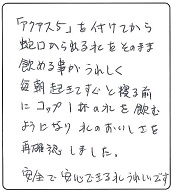 「アクアス5」を付けてから
蛇口から出る水をそのまま
飲める事がうれしく
毎朝起きてすぐと寝る前
にコップ1杯の水を飲む
ようになり水のおいしさを
再確認しました。
安全で安心できる水うれしいです